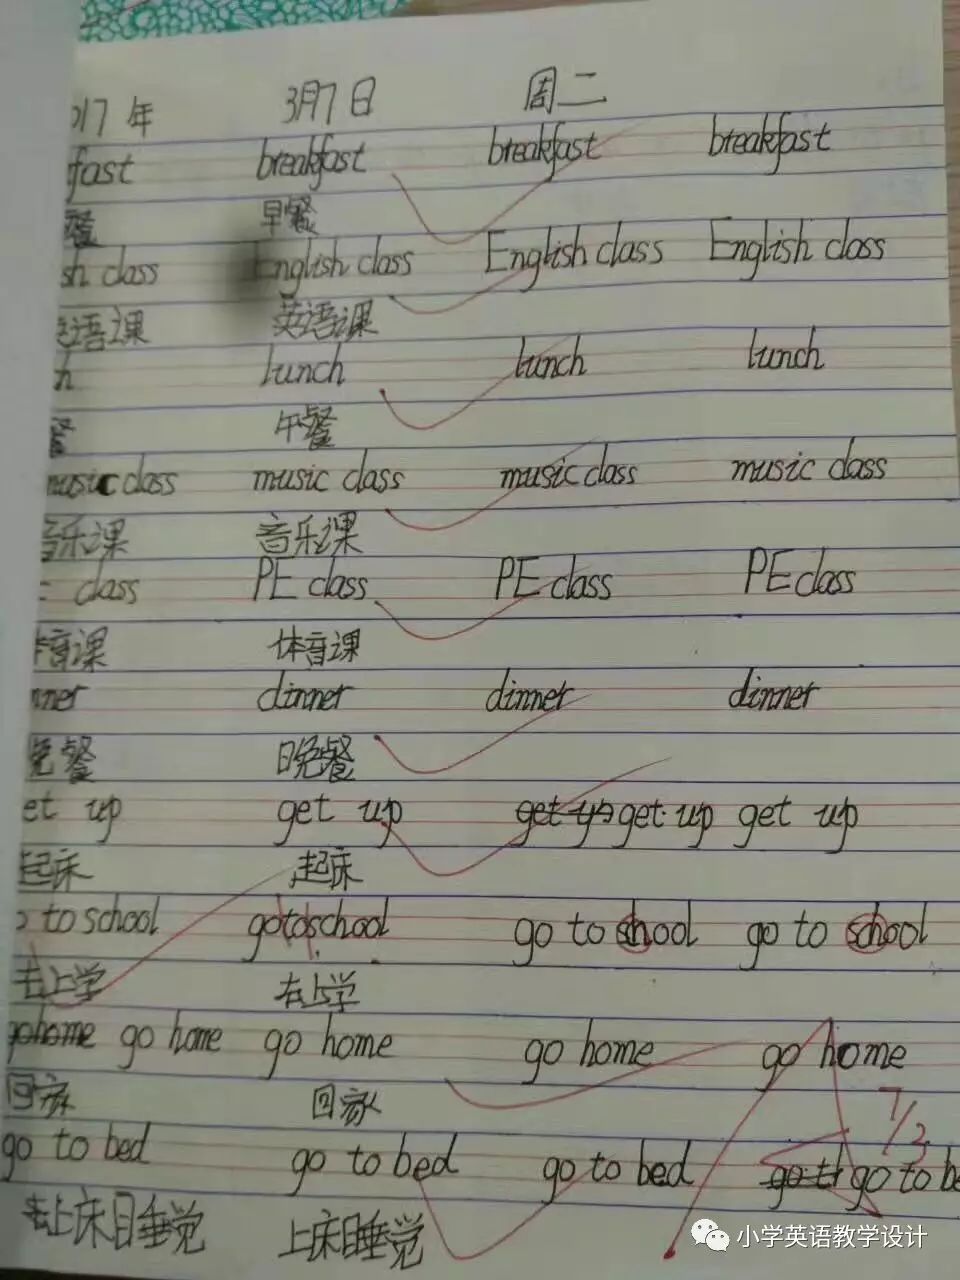 017 年 3月7日 周二
fast breakfast breakfast breakfast
餐 早餐
sh class English class English class English class
语课 英语课
h lunch lunch lunch
餐 午餐
music class music class music class music class
音乐课 音乐课
class PE class PE class PE class
体育课 体育课
nner dinner dinner dinner
晚餐 晚餐
et up get up get up get up get up
起床 起床
to school go to school go to shool go to school
去上学 去上学
go home go home go home go home go home
回家 回家
go to bed go to bed go to bed go to be
去上床睡觉 上床睡觉
小学英语教学设计